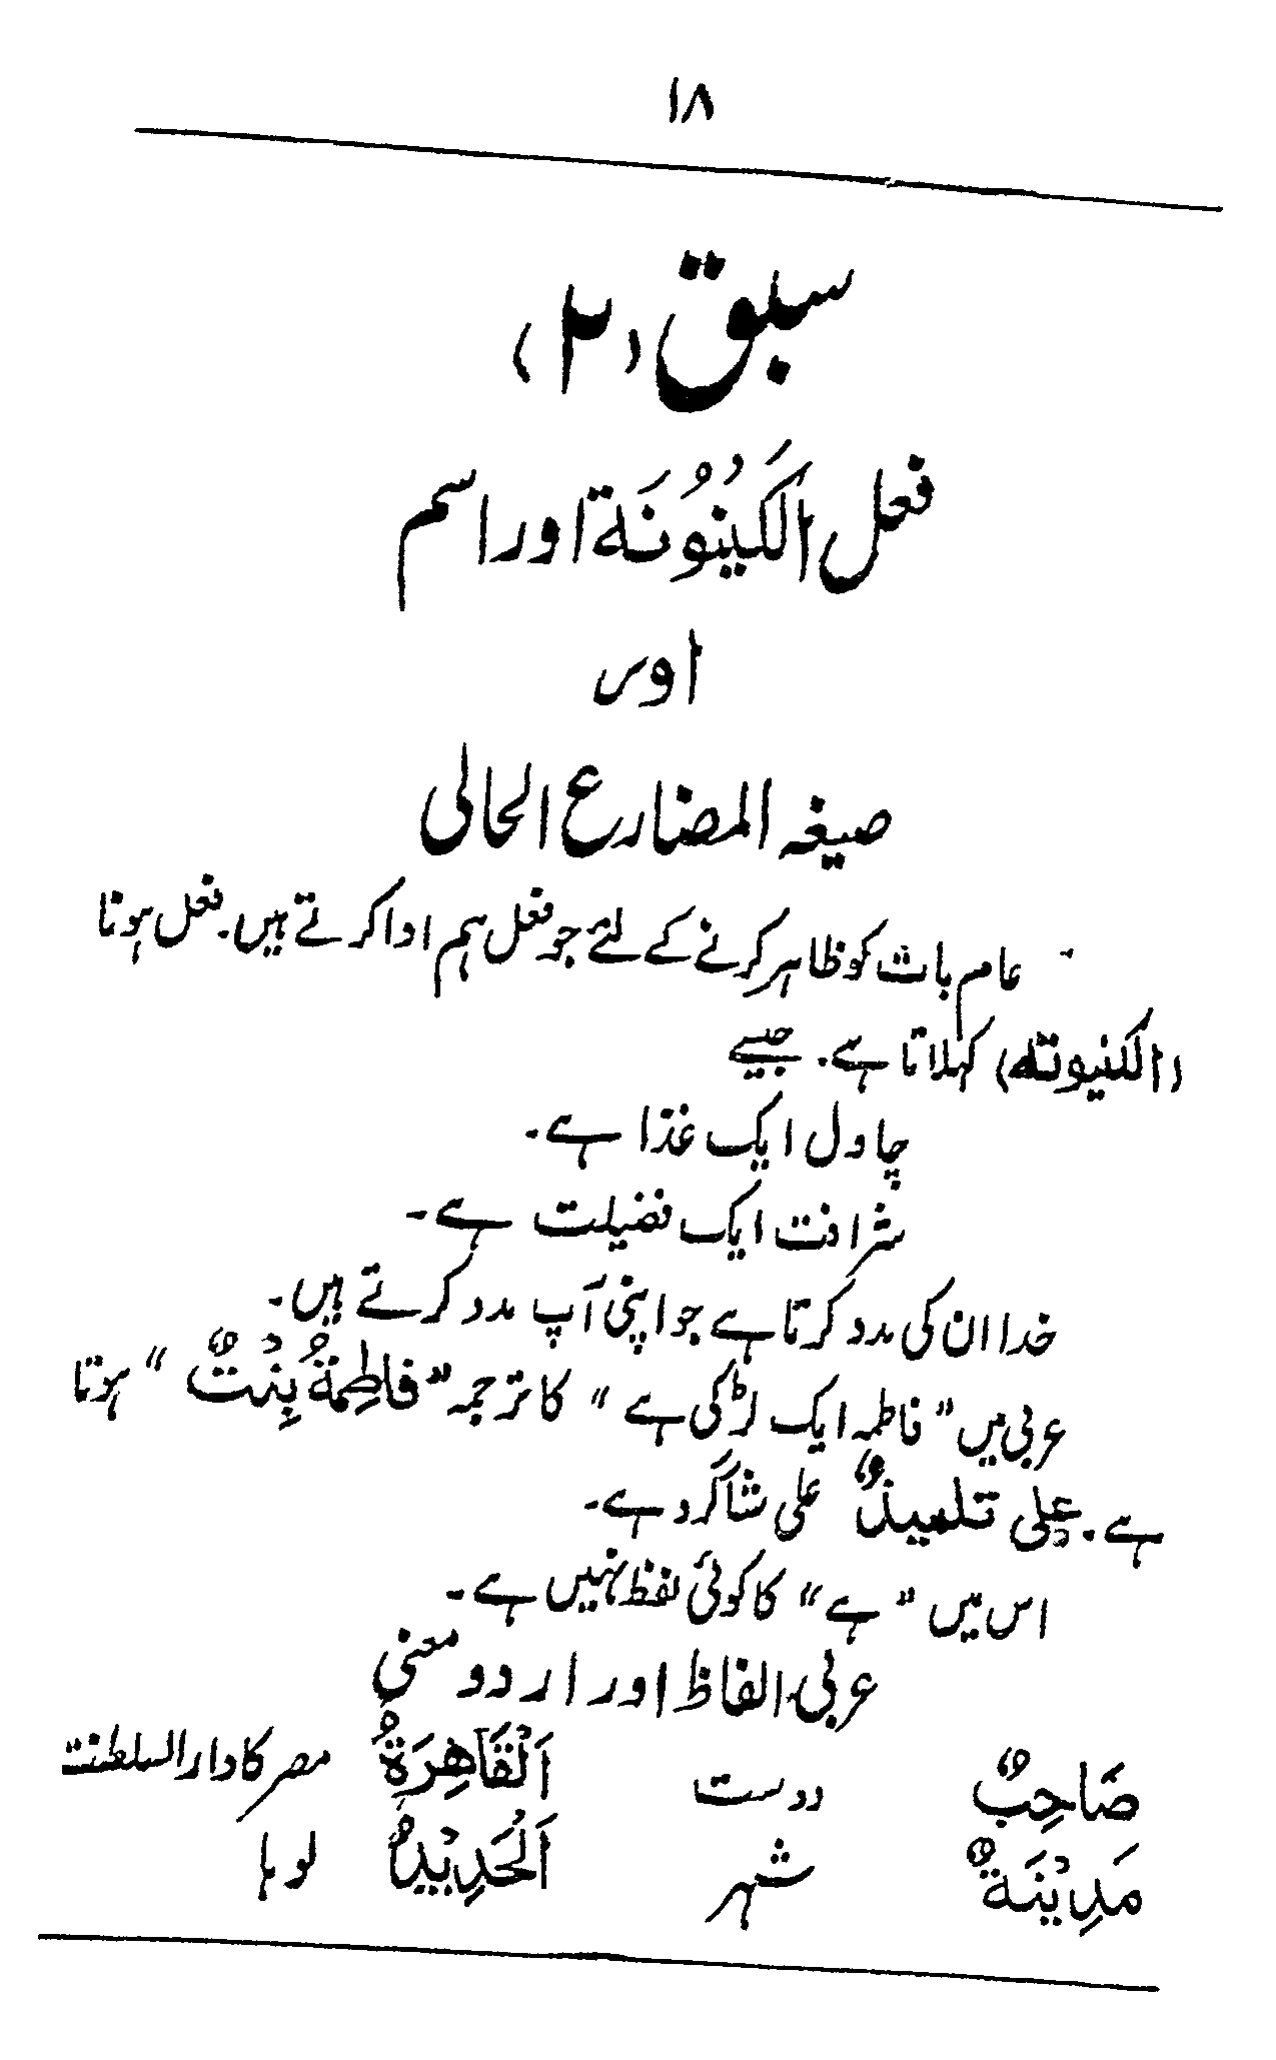 ۱۸
سبق (۲)
فعل الَكَيْنُوُنَة اور اسم
اور
صیغہ المضارع الحالی
عام بات کو ظاہر کرنے کے لئے جو فعل ہم ادا کرتے ہیں۔ فعل ہونا
(الکنیوتہ) کہلاتا ہے۔ جیسے
چاول ایک غذا ہے۔
شرافت ایک فضیلت ہے۔
خدا ان کی مدد کرتا ہے جو اپنی آپ مدد کرتے ہیں۔
عربی میں "فاطمہ ایک لڑکی ہے" کا ترجمہ "فاطِمةُ بِنْتٌ" ہوتا
ہے۔ علی تلمیذٌ علی شاگرد ہے۔
اس میں "ہے" کا کوئی لفظ نہیں ہے۔
عربی الفاظ اور اردو معنی
صَاحِبٌ دوست اَلْقَاهِرَةُ مصر کا دارالسلطنت
مَدِيْنَةٌ شہر اَلْحَدِيْدُ لوہا